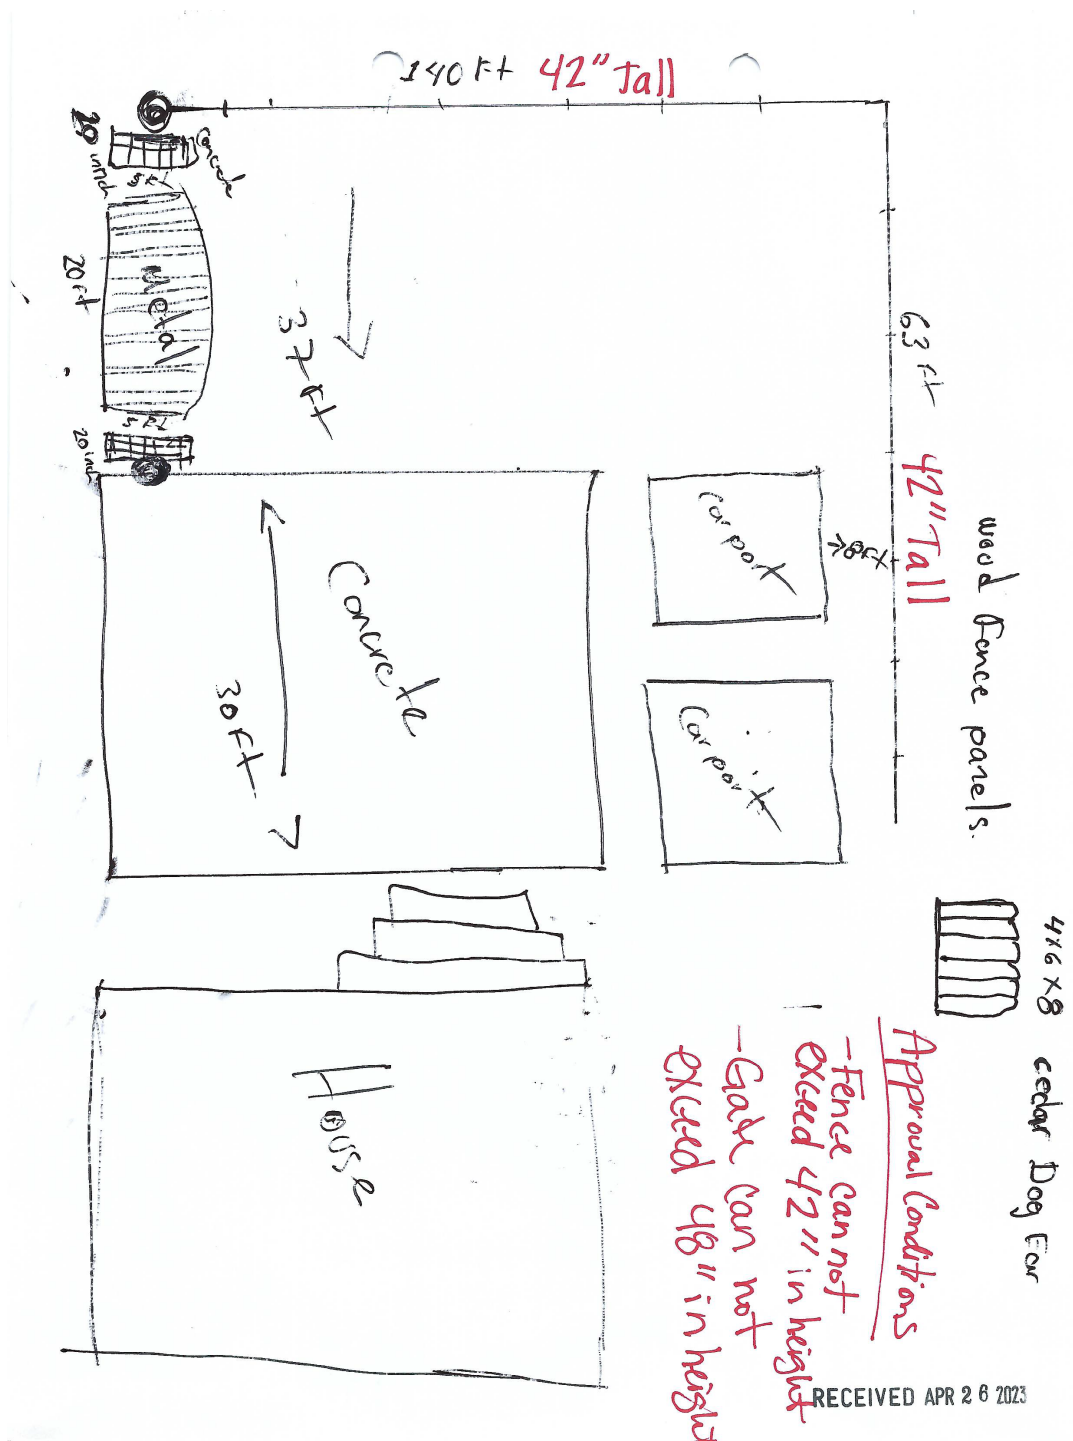 140 Ft 42" Tall
Concrete
20 inch
5 Ft
Metal
20 Ft
5 Ft
20 inch
37 Ft
63 Ft 42" Tall
wood Fence panels.
Carport
→ 8 Ft
Carport
Concrete
30 Ft.
House
4x6x8 cedar Dog Ear
Approval Conditions
- Fence can not
exceed 42" in height
- Gate can not
exceed 48" in height
RECEIVED APR 26 2023